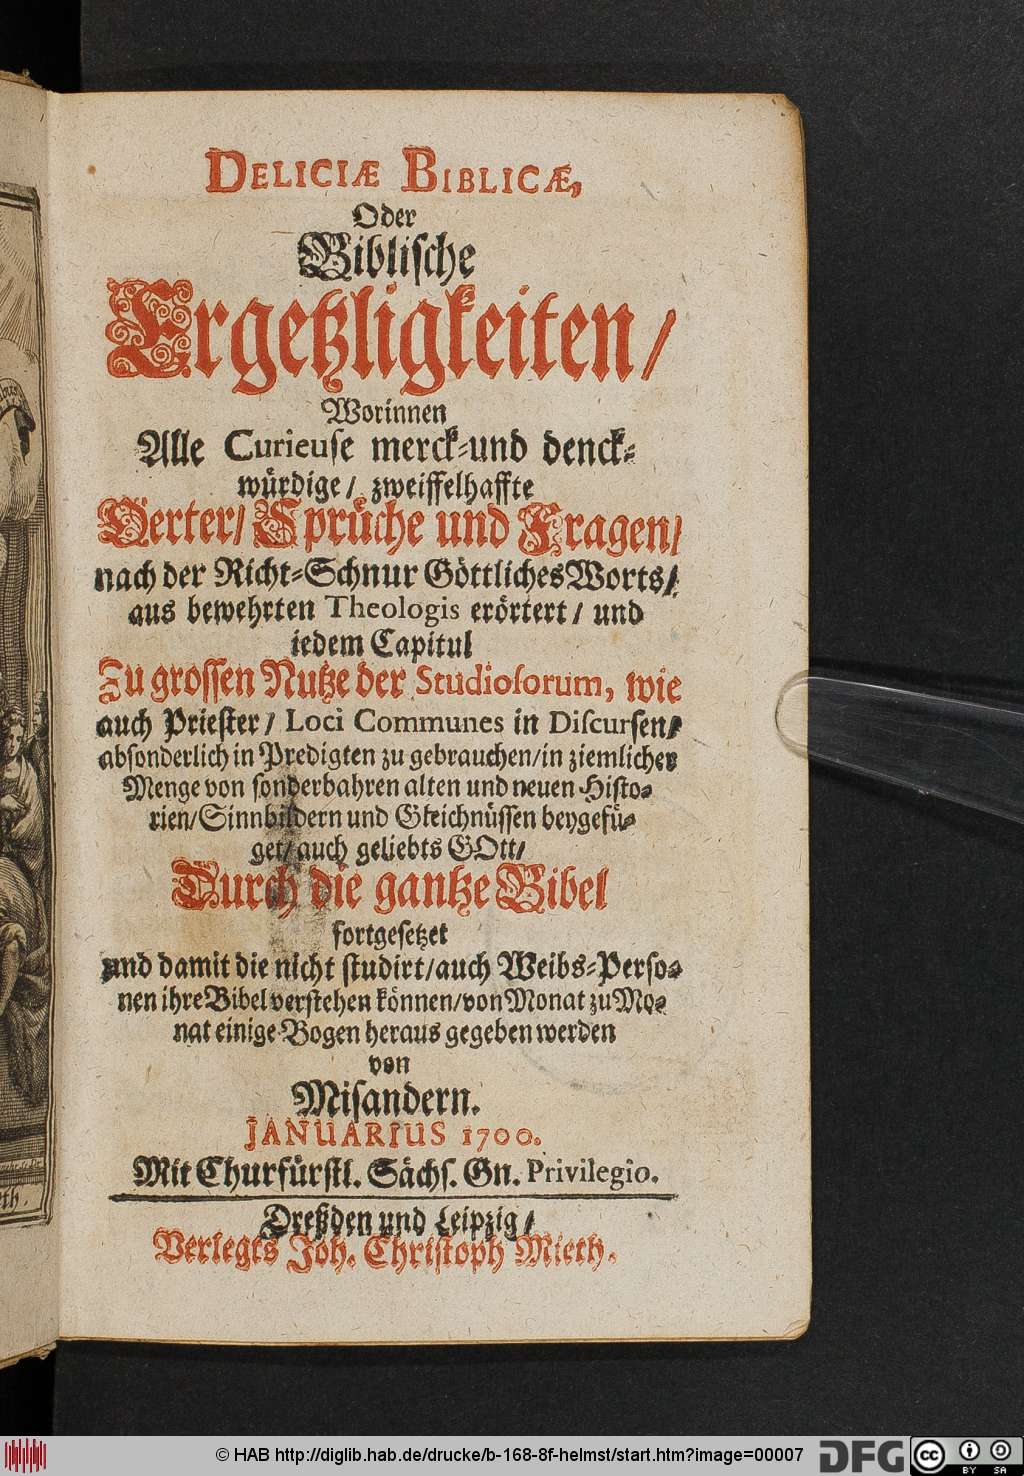 DELICIÆ BIBLICÆ,
Oder
Bibliſche
Ergetzligkeiten/
Worinnen
Alle Curieuſe merck-und denck-
würdige/ zweiffelhaffte
Oerter/ Sprüche und Fragen/
nach der Richt-Schnur Göttliches Worts/
aus bewehrten Theologis erörtert/ und
iedem Capitul
Zu groſſen Nutze der Studioſorum, wie
auch Prieſter/ Loci Communes in Diſcurſen/
abſonderlich in Predigten zu gebrauchen/ in ziemlicher
Menge von ſonderbahren alten und neuen Hiſto-
rien/ Sinnbildern und Gleichnüſſen beygefü-
get/ auch geliebts GOtt/
Durch die gantze Bibel
fortgeſetzet
und damit die nicht ſtudirt/ auch Weibs-Perſo-
nen ihre Bibel verſtehen können/ von Monat zu Mo-
nat einige Bogen heraus gegeben werden
von
Miſandern.
JANUARIUS 1700.
Mit Churfürſtl. Sächſ. Gn. Privilegio.
Dreßden und Leipzig/
Verlegts Joh. Chriſtoph Mieth.
© HAB http://diglib.hab.de/drucke/b-168-8f-helmst/start.htm?image=00007
DFG
cc BY SA